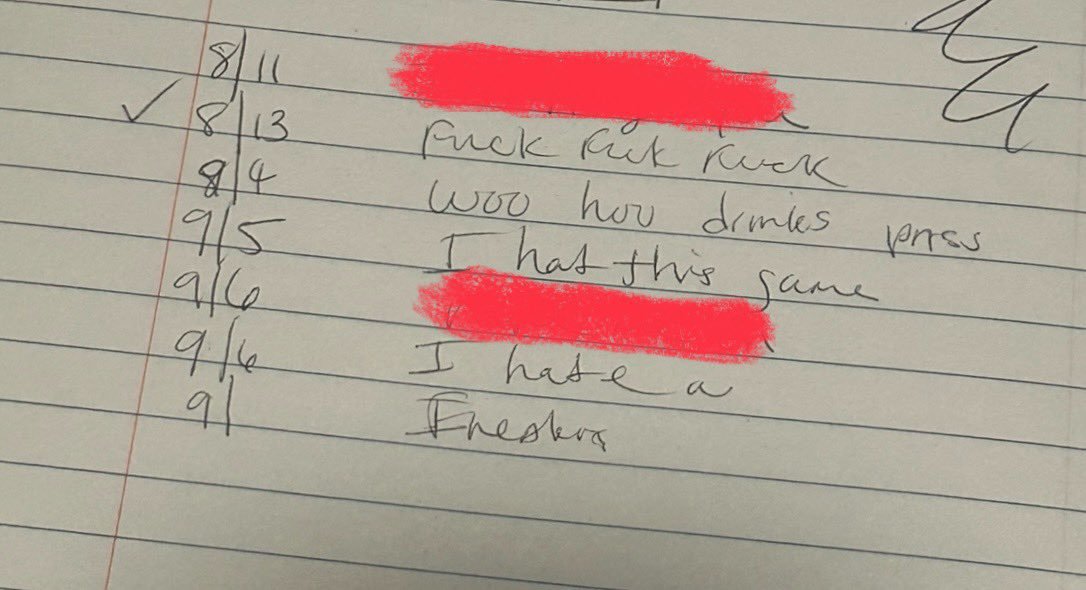 8/11
✓ 8/13 Fuck Fuk Fuck
8/4 woo hoo drinks
9/5 I hat this game
9/6
9/6 I hate a
9/